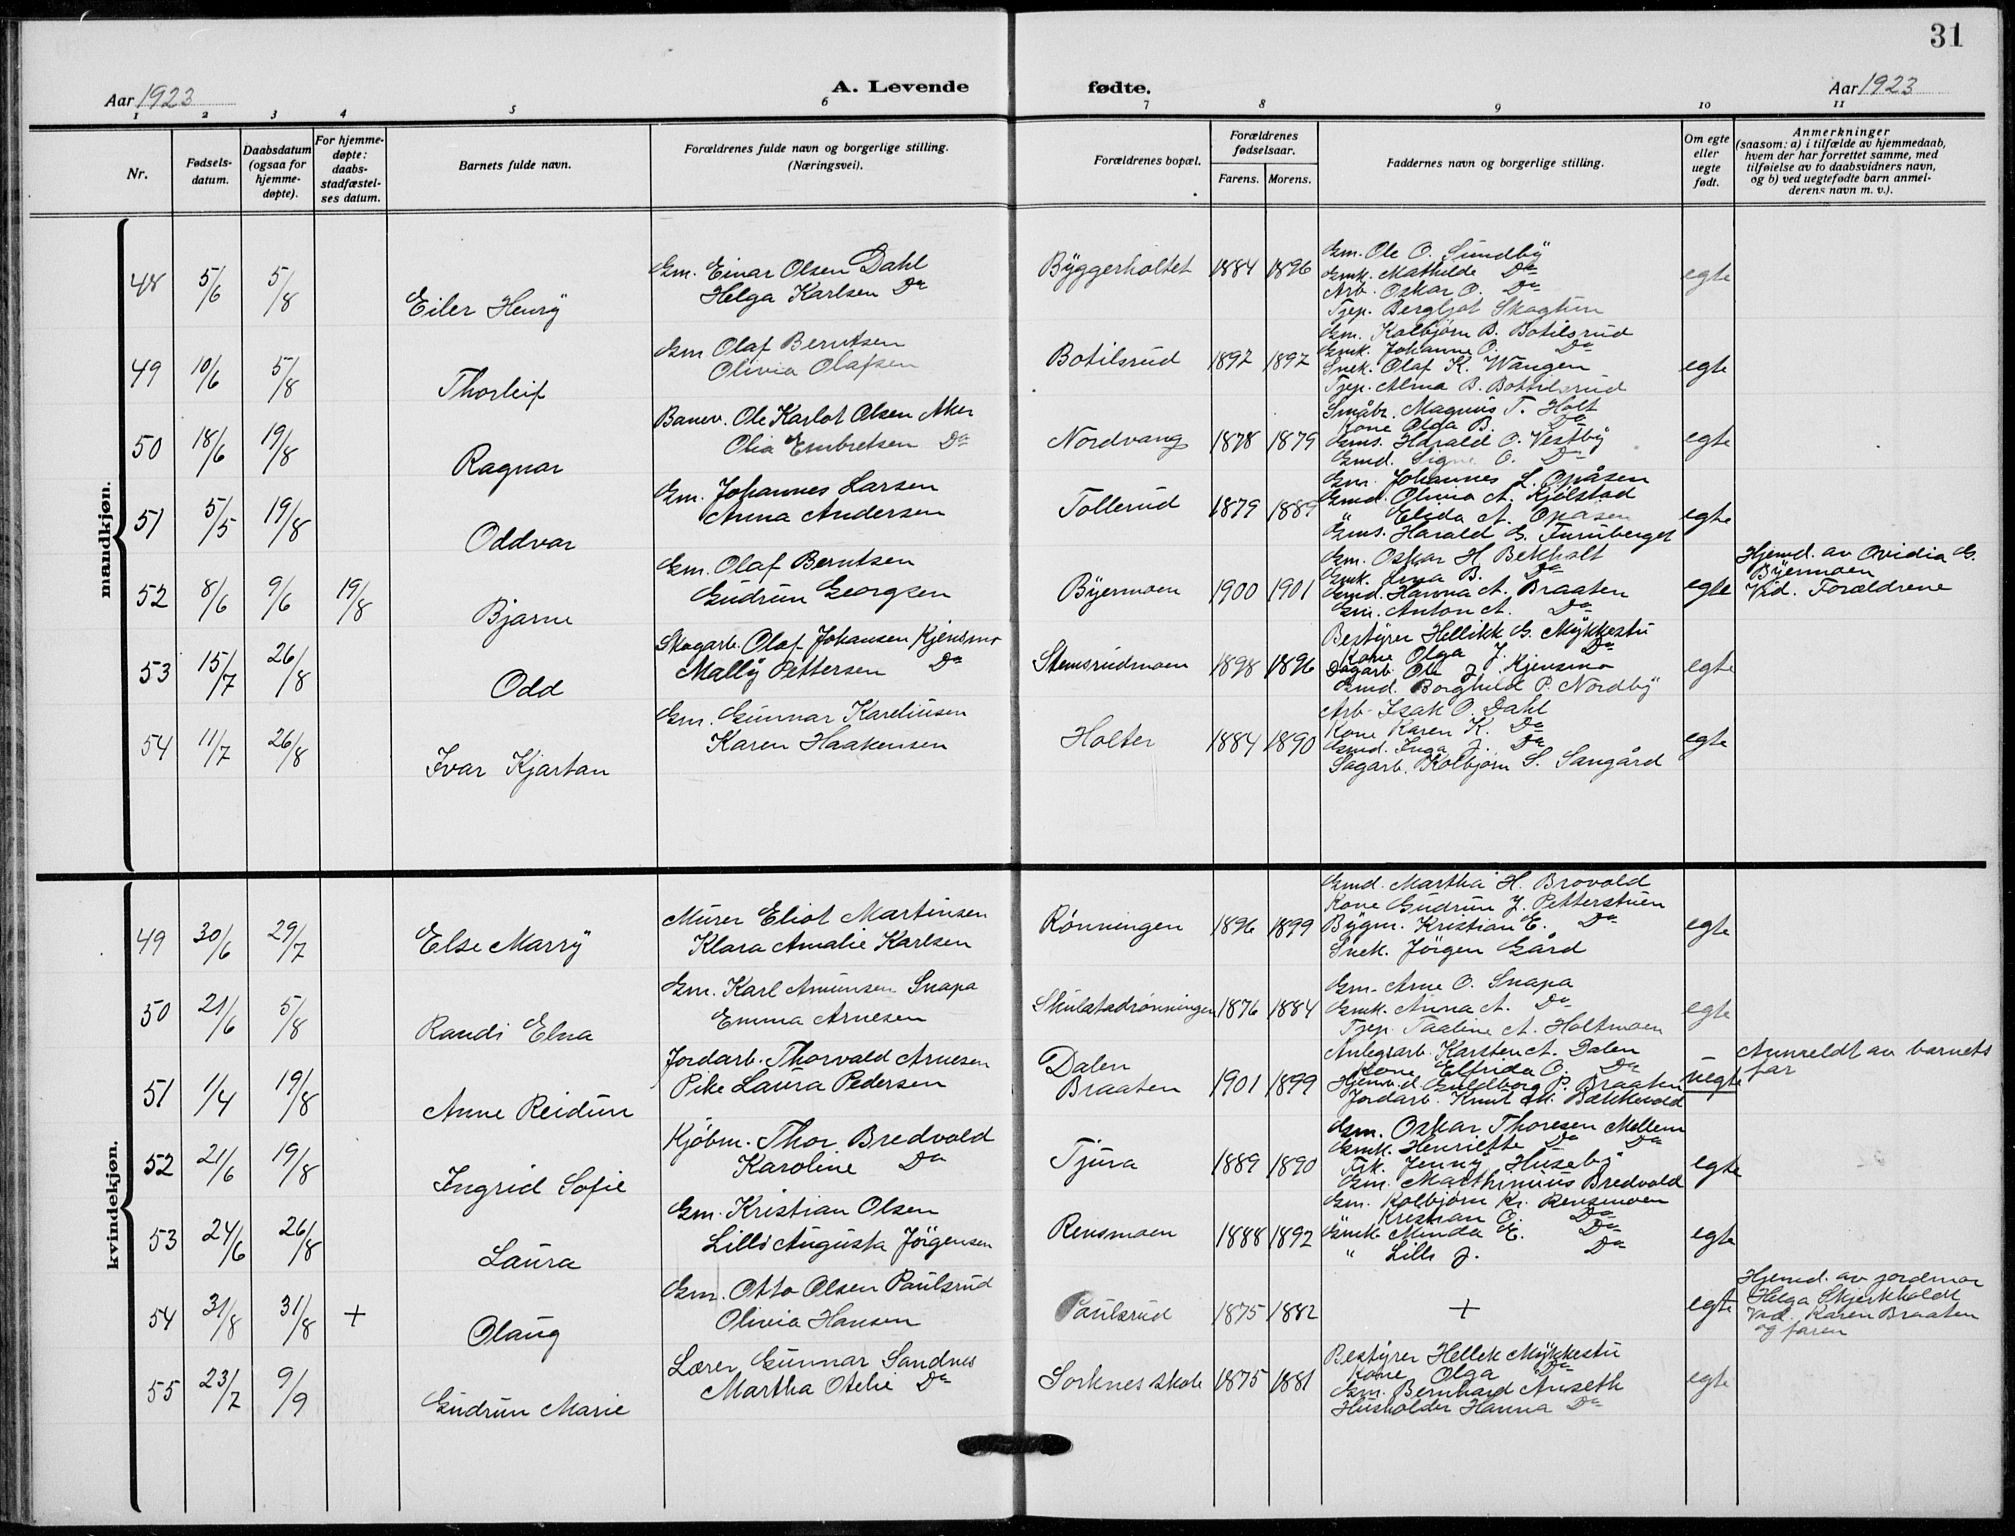 31
Aar 1923
A. Levende
fødte.
Aar 1923
1 2 3 4 5 6 7 8 9 10 11
Nr.
Fødsels-
datum.
Daabsdatum
(ogsaa for
hjemme-
døpte).
For hjemme-
døpte:
daabs-
stadfæstel-
ses datum.
Barnets fulde navn.
Forældrenes fulde navn og borgerlige stilling.
(Næringsvei).
Forældrenes bopæl.
Forældrenes
fødselsaar.
Farens. Morens.
Faddernes navn og borgerlige stilling.
Om egte
eller
uegte
født.
Anmerkninger
(saasom: a) i tilfælde av hjemmedaab,
hvem der har forrettet samme, med
tilføielse av to daabsvidners navn,
og b) ved uegtefødte barn anmel-
derens navn m. v.).
mandkjøn.
48 5/6 5/8
Eiler Henry
Gm. Einar Olsen Dahl
Helga Karlsen Do
Byggerholtet 1884 1896
Gm. Ole O. Sundby
Gmk. Mathilde Do
Arb. Oskar O. Do
Tjep. Bergljot Skogtun
egte
49 10/6 5/8
Thorleif
Gm Olaf Berntsen
Olivia Olafsen
Botilsrud 1892 1892
Gm. Kolbjørn B. Botilsrud
Gmk. Johanne O. Do
Snek. Olaf K. Wangen
Tjep. Alma B. Bottilsrud
egte
50 18/6 19/8
Ragnar
Banev. Ole Karlot Olsen Aker
Olia Embretsen Do
Nordvang 1878 1879
Småbr. Magnus T. Holt
Kone Olga B. Do
Gms. Harald O. Vestby
Gmd. Signe O. Do
egte
51 5/5 19/8
Oddvar
Gm. Johannes Larsen
Anna Andersen
Tollerud 1879 1889
Gm. Johannes L. Opåsen
Gmd. Olivia A. Kjølstad
" Elida A. Opåsen
Gms. Harald G. Furuberget
egte
52 8/6 9/6 19/8
Bjarne
Gm. Olaf Berntsen
Gudrun Georgsen
Byermoen 1900 1901
Gm. Oskar H. Bekholt
Gmk. Anna B. Do
Gmd. Hanna A. Braaten
Gm. Anton A. Do
egte
Hjemd. av Ovidia G.
Byermoen
Vid. Forældrene
53 15/7 26/8
Odd
Skogarb. Olaf Johansen Kjensmo
Mally Pettersen Do
Stemsrudmoen 1898 1896
Bestyrer Hellikk G. Mykkestu
Kone Olga J. Do
Dagarb. Ole J. Kjensmo
Gmd. Borghild P. Nordby
egte
54 11/7 26/8
Ivar Kjartan
Gm. Gunnar Kareliusen
Karen Haakensen
Holter 1884 1890
Arb. Isak O. Dahl
Kone Karen K. Do
Gmd. Inga J. Do
Sagarb. Kolbjørn S. Sangård
egte
kvindekjøn.
49 30/6 29/7
Else Marry
Murer Eliot Martinsen
Klara Amalie Karlsen
Rønningen 1896 1899
Gmd. Martha H. Brovold
Kone Gudrun J. Petterstuen
Bygm. Kristian E. Do
Snek. Jørgen Gård
egte
50 21/6 5/8
Randi Elna
Gm. Karl Amunsen Snapa
Emma Arnesen
Skulstadrønningen 1876 1884
Gm. Arne O. Snapa
Gmk. Anna A. Do
Tjep. Taaline A. Holtmoen
egte
51 1/4 19/8
Anne Reidun
Jordarb. Thorvald Arnesen
Pike Laura Pedersen
Dalen
Braaten 1901 1899
Anlegsarb. Karsten A. Dalen
Kone Elfrida O. Do
Hjemv.d. Guldborg P. Braaten
Jordarb. Knut M. Bækkevold
uegte
Anmeldt av barnets
far
52 21/6 19/8
Ingrid Sofie
Kjøbm. Thor Bredvold
Karoline Do
Tjura 1889 1890
Gm. Oskar Thoresen Mellem
Gmk. Henriette Do Do
Frk. Jenny Huseby
Gm. Marthinius Bredvold
egte
53 24/6 26/8
Laura
Gm. Kristian Olsen
Lilli Augusta Jörgensen
Rensmoen 1888 1892
Gm. Kolbjørn Kr. Rensmoen
" Kristian O. Do
Gmk. Minda E. Do
" Lilli J. Do
egte
54 31/8 31/8 +
Olaug
Gm. Otto Olsen Paulsrud
Olivia Hansen
Paulsrud 1875 1882
+
egte
Hjemd. av jordmor
Helga Skjerkholdt
Vid. Karen Braaten
og faren
55 23/7 9/9
Gudrun Marie
Lærer Gunnar Sandnes
Martha Otelie Do
Sorknes skole 1875 1881
Bestyrer Hellek Mykkestu
Kone Olga Do
Gm. Bernhard Auseth
Husholder Hanna Do
egte